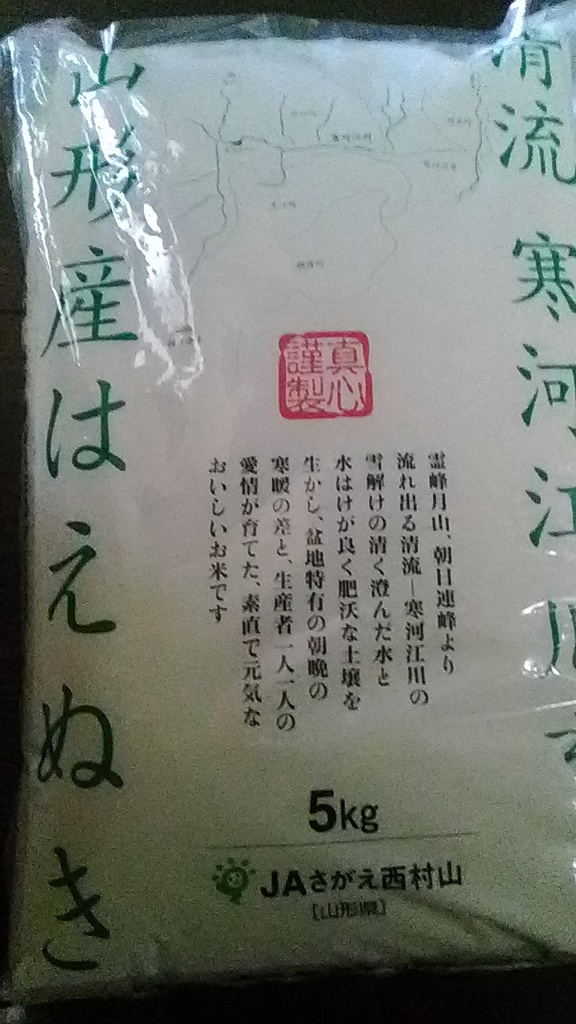 清流 寒河江川
山形産はえぬき
真心
謹製
霊峰月山、朝日連峰より
流れ出る清流―寒河江川の
雪解けの清く澄んだ水と
水はけが良く肥沃な土壌を
生かし、盆地特有の朝晩の
寒暖の差と、生産者一人一人の
愛情が育てた、素直で元気な
おいしいお米です
5kg
JAさがえ西村山
[山形県]